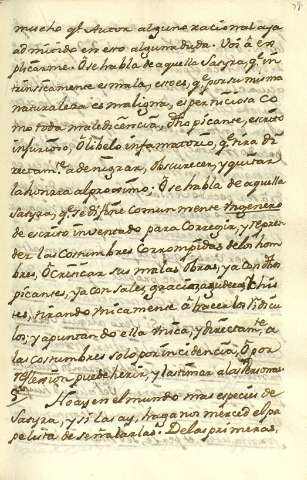 mucho qe Autor alguno racional aya
admitido en esto alguna duda. Voi à ex
plicarme. O se habla de aquella Satyra, qe in
trinsicamente es mala, esto es, qe por su misma
naturaleza es maligna, es perniciosa co
mo toda maledicencia, dho picante, escrito
injurioso, O libelo infamatorio, qe tira di
rectamte à denigrar, obscurecer, y quitar
la honrra al proximo: O se habla de aquella
Satyra, qe se difine comunmente Un genero
de escrito inventado para Corregir, y repren
der las Costumbres Corrompidas de los hom
bres, O Criticar sus malas Obras, ya con dhos
picantes, ya con sales, gracias agudezas Chis
tes, tirando unicamente à hacer los ridicu
los, y apuntando ella unica, y directamte à
las costumbres solo por incidencia, O por
reflexion puede herir, y lastimar a las Personas.
No ay en el mundo mas especies de
Satyra, y si las ay, haganos merced el pa
pelista de señalarlas. De las primeras,